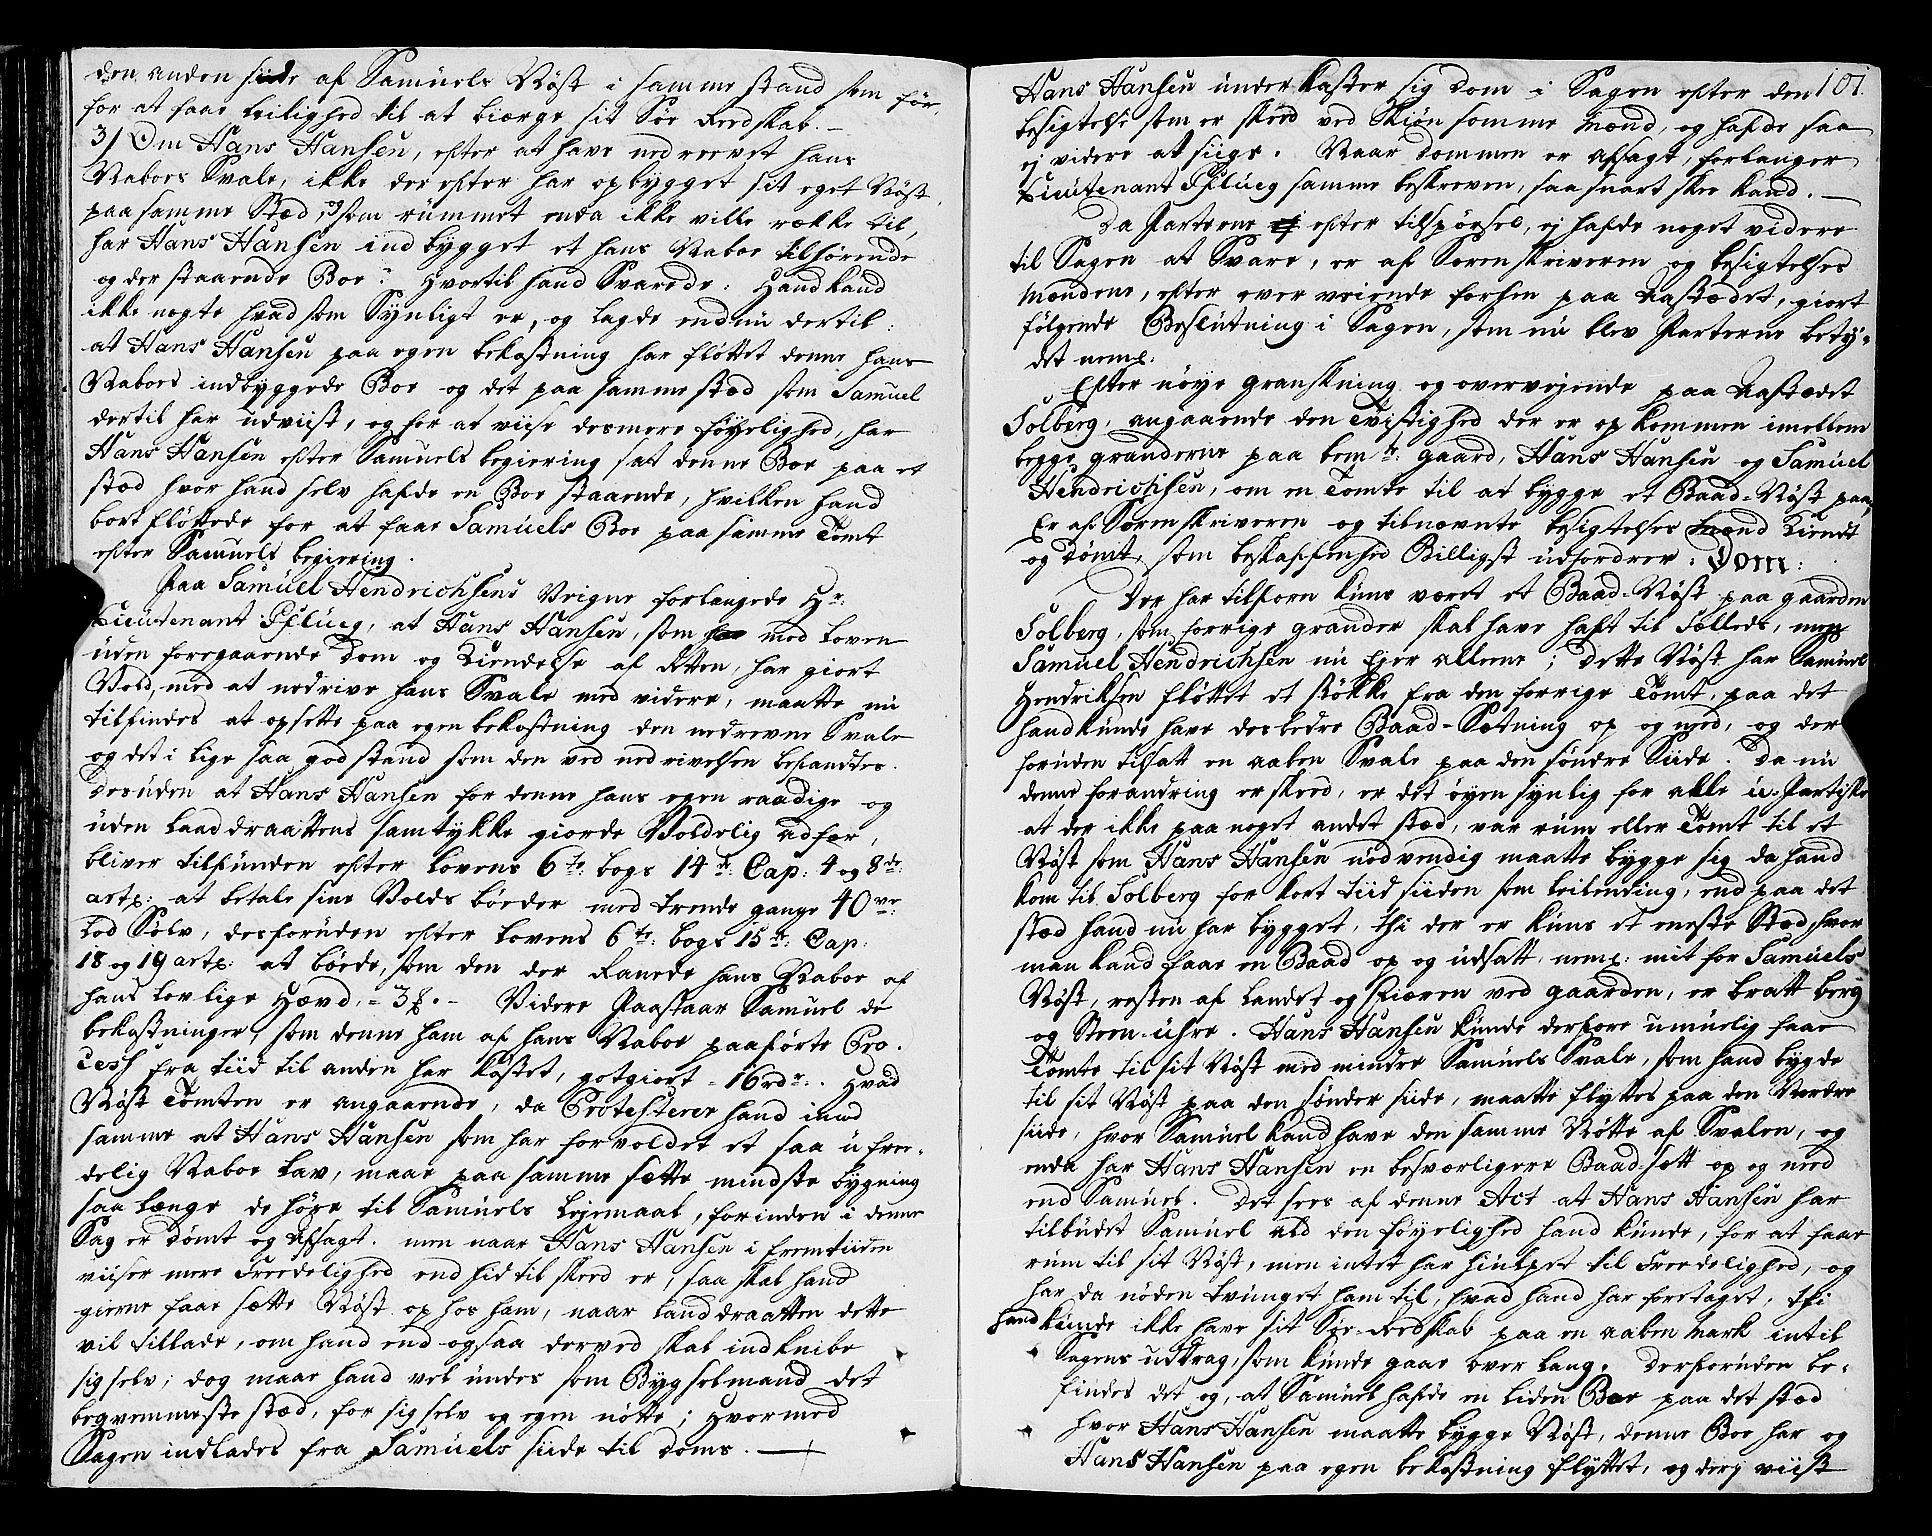 den anden siide af Samuels Nöst i samme stand som för,
for at faae leilighed til at biærge sit Söe Reedskab. —
3) Om Hans Hansen, efter at have nedreevet hans
Naboes Svale, ikke der efter har opbygget sit eget Nöst
paa samme Stæd, og som rummet enda ikke ville række til,
har Hans Hansen ind bygget et hans Naboe tilhörende
og der staaende Boe? Hvortil hand Svarede: Hand kand
ikke negte hvad som Synligt er, og lagde endnu dertil:
at Hans Hansen paa egen bekostning har flöttet denne hans
Naboes indbyggede Boe og det paa samme stæd som Samuel
dertil har udviist, og for at viise desmere föyelighed, har
Hans Hansen efter Samuels begiering satt denne Boe paa et
stæd hvor hand selv hafde en Boe staaende, hvilken hand
bortflöttede for at faae Samuels Boe paa samme Tomt
efter Samuels begiering.
Paa Samuel Hendrichsens Veigne forlangede Hr:
Lieutenant Pflueg, at Hans Hansen, som har mod Loven
uden foregaaende Dom og Kiendelse af Retten, har giort
Vold, med at nedrive hans Svale med videre, maatte nu
tilfindes at opsette paa egen bekostning den nedrevne Svale
og det i lige saa god stand som den ved nedrivelsen befandtes.
Desuden at Hans Hansen for denne hans egen raadige og
uden Landdraattens samtykke giorde Voldelig adfær,
bliver tilfunden efter Lovens 6te: bogs 14de: Cap: 4 og 8de:
artl: at betale sine Volds böeder med trende gange 40ve:
Lod Sölv, desforuden efter Lovens 6te: bogs 15de: Cap:
18 og 19 artl: at böede, som den der Ranede hans Naboe af
hans Lovlige Hævd, = 3 . – Videre Paastaar Samuel de
bekostninger, som denne ham af hans Naboe paaförte Pro-
cess fra tiid til anden har kostet, gotgiort = 16 rdr. Hvad
Nöst Tomten er angaaende, da Protesterer hand imod
samme at Hans Hansen som har forvoldet et saa ufree-
delig Naboe Lav, maae paa samme sætte mindste bygning
saa længe de höre til Samuels Lejemaal, forinden i denne
Sag er dömt og Afsagt. men naar Hans Hansen i fremtiiden
viiser mere Freedelighed end hid til skeed er, saa skal hand
gierne faae sætte Nöst op hos ham, naar Landdraatten dette
vil tillade, om hand end ogsaa derved skal indknibe
sig selv; dog maae hand vel undes som Bygselmand det
beqvemmeste stæd, for sig selv og egen nötte; Hvormed
Sagen indlades fra Samuels siide til doms. —
101.
Hans Hansen underkaster sig Dom i Sagen efter den
besigtelse som er skeed ved Skiönsomme Mænd, og hafde saa
ej videre at siige. Naar Dommen er afsagt, forlanger
Lieutenant Pflueg samme beskreven, saa snart skee kand. —
Da Parterne efter tilspörsel, ej hafde noget videre
til Sagen at Svare, er af Sorenskriveren og besigtelses
Mændene, efter overveiende forhen paa Aastædet, giort
fölgende Beslutning i Sagen, som nu blev Parterne bety-
det neml:
Efter nöye granskning og overvejende paa Aastædet
Solberg, angaaende den Tvistighed der er opkommen imellem
begge granderne paa bemte: gaard, Hans Hansen og Samuel
Hendrichsen, om en Tomte til at bygge et Baad-Nöst paa,
Er af Sorenskriveren og tilnævnte besigtelses Mænd Kiendt
og Dömt, som beskaffenhed Billigst udfordrer: Dom:
Der har tilforn kuns været et Baad-Nöst paa gaarden
Solberg, som forrige grander skal have haft til Fælleds, men
Samuel Hendrichsen nu Ejer allene; Dette Nöst har Samuel
Hendriksen flöttet et stökke fra den forrige Tomt, paa det
hand kunde have des bedre Baad-Sætning op og ned, og der
foruden tilsatt en aaben Svale paa den söndre Siide. Da nu
denne forandring er skeed, er det öyensynlig for alle u-Partiske
at der ikke paa noget andet stæd, var rum eller Tomt til et
Nöst som Hans Hansen nödvendig maatte bygge sig da hand
kom til Solberg for kort tiid siiden som Leilending, end paa det
stæd hand nu har bygget, thi der er kuns et eneste Stæd hvor
man kand faae en Baad op og udsatt, neml: mit for Samuels
Nöst, resten af Landet og Fiæren ved gaarden, er bratt berg
og Steen-uhre. Hans Hansen kunde derfore umuelig faae
Tomte til sit Nöst med mindre Samuels Svale, som hand bygde
til sit Nöst paa den sönder siide, maatte flyttes paa den Nordre
siide, hvor Samuel kand have den samme Nötte af Svalen, og
enda har Hans Hansen en besværligere Baad-sætt op og need
end Samuel. Det sees af denne Act at Hans Hansen har
tilbudet Samuel ald den föyelighed hand kunde, for at faae
rum til sit Nöst, men intet har hiulpet til Freedelighed, og
har da nöden tvunget ham til, hvad hand har foretaget, thi
hand kunde ikke have sit Söe-Reedskab paa en aaben Mark intil
Sagens uddrag, som kunde gaae over lang. Derforuden be-
findes det og, at Samuel hafde en liden Boe paa det stæd
hvor Hans Hansen maatte bygge Nöst, denne Boe har og
Hans Hansen paa egen bekostning flyttet, og derj viist